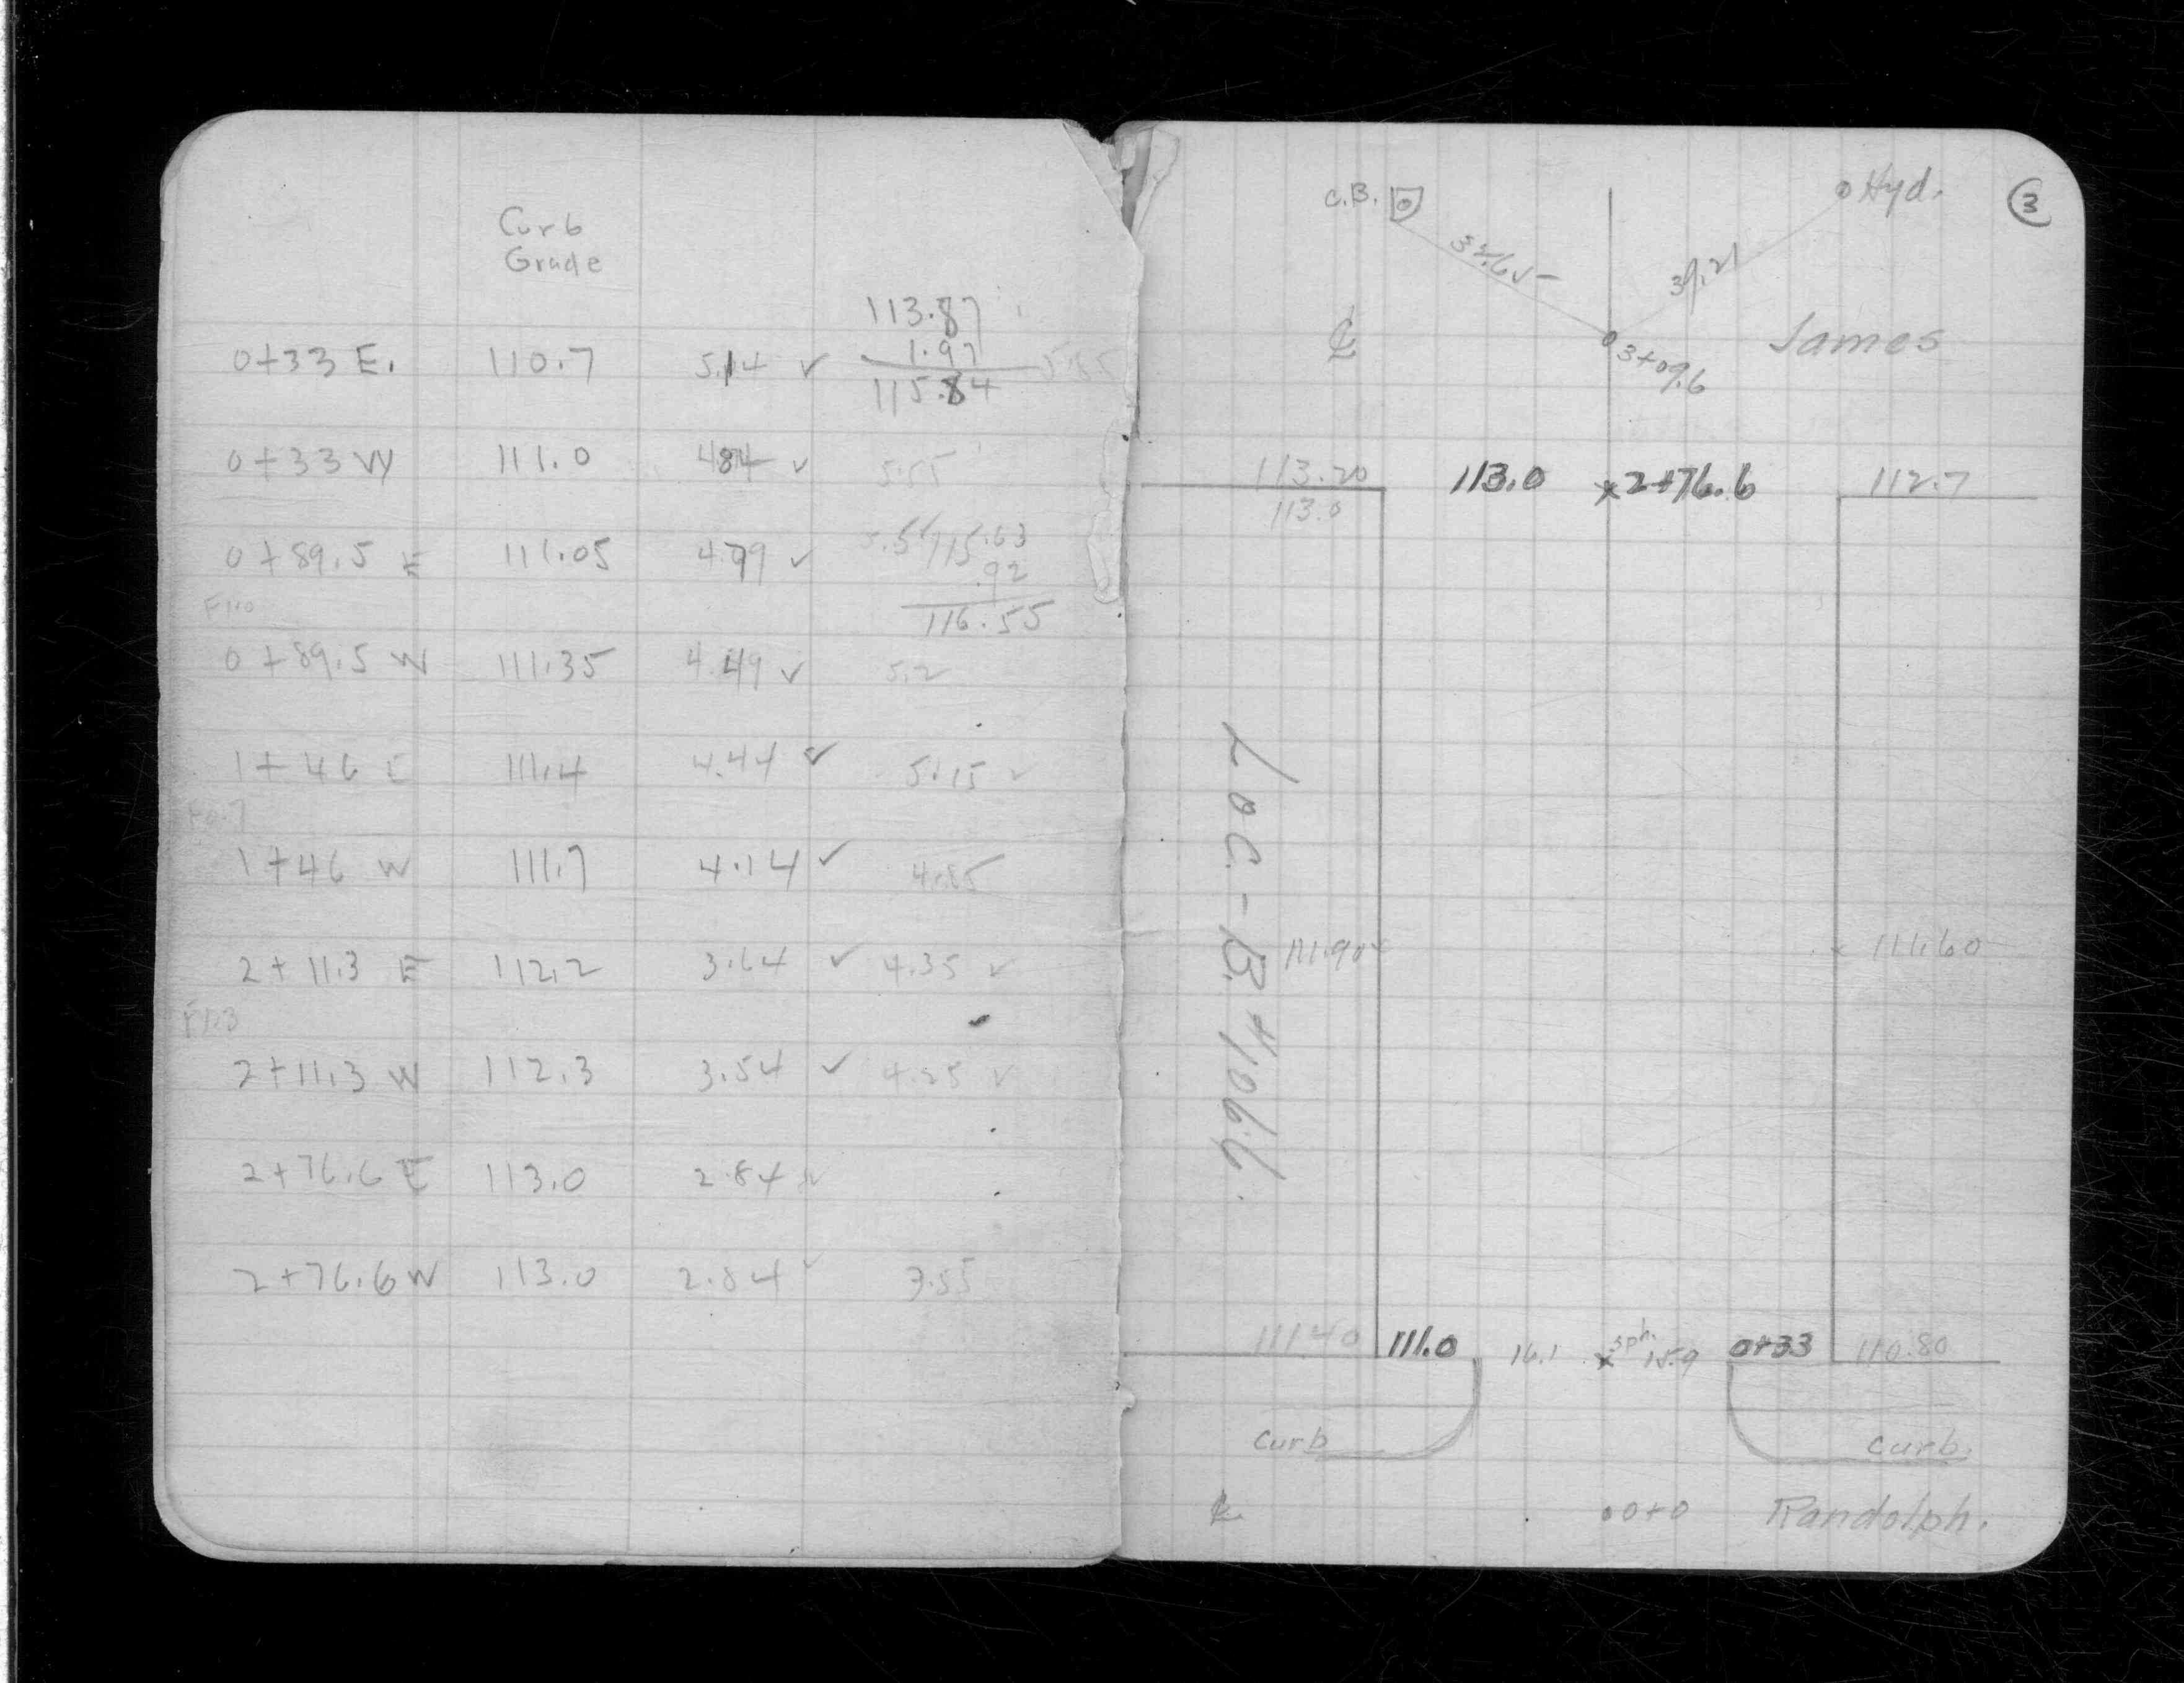 Curb
Grade
113.87
1.97
0+33 E. 110.7 5.14 ✓ 115.84 5.85
0+33 W 111.0 4.84 ✓ 5.55
0+89.5 E 111.05 4.79 ✓ 5.5 115.63
.92
116.55
0+89.5 W 111.35 4.49 ✓ 5.2
1+46 E 111.4 4.44 ✓ 5.15 ✓
1+46 W 111.7 4.14 ✓ 4.85
2+11.3 E 112.2 3.64 ✓ 4.35 ✓
2+11.3 W 112.3 3.54 ✓ 4.25 ✓
2+76.6 E 113.0 2.84 ✓
2+76.6 W 113.0 2.84 ✓ 3.55
3
C.B. Hyd.
39.21
℄ 3+09.6 James
113.20 113.0 x 2+76.6 112.7
113.0
Loc.-B#1066.
111.90 x x 111.60
111.40 111.0 16.1 x sph. 15.9 0+33 110.80
Curb curb.
℄ 0+0 Randolph.